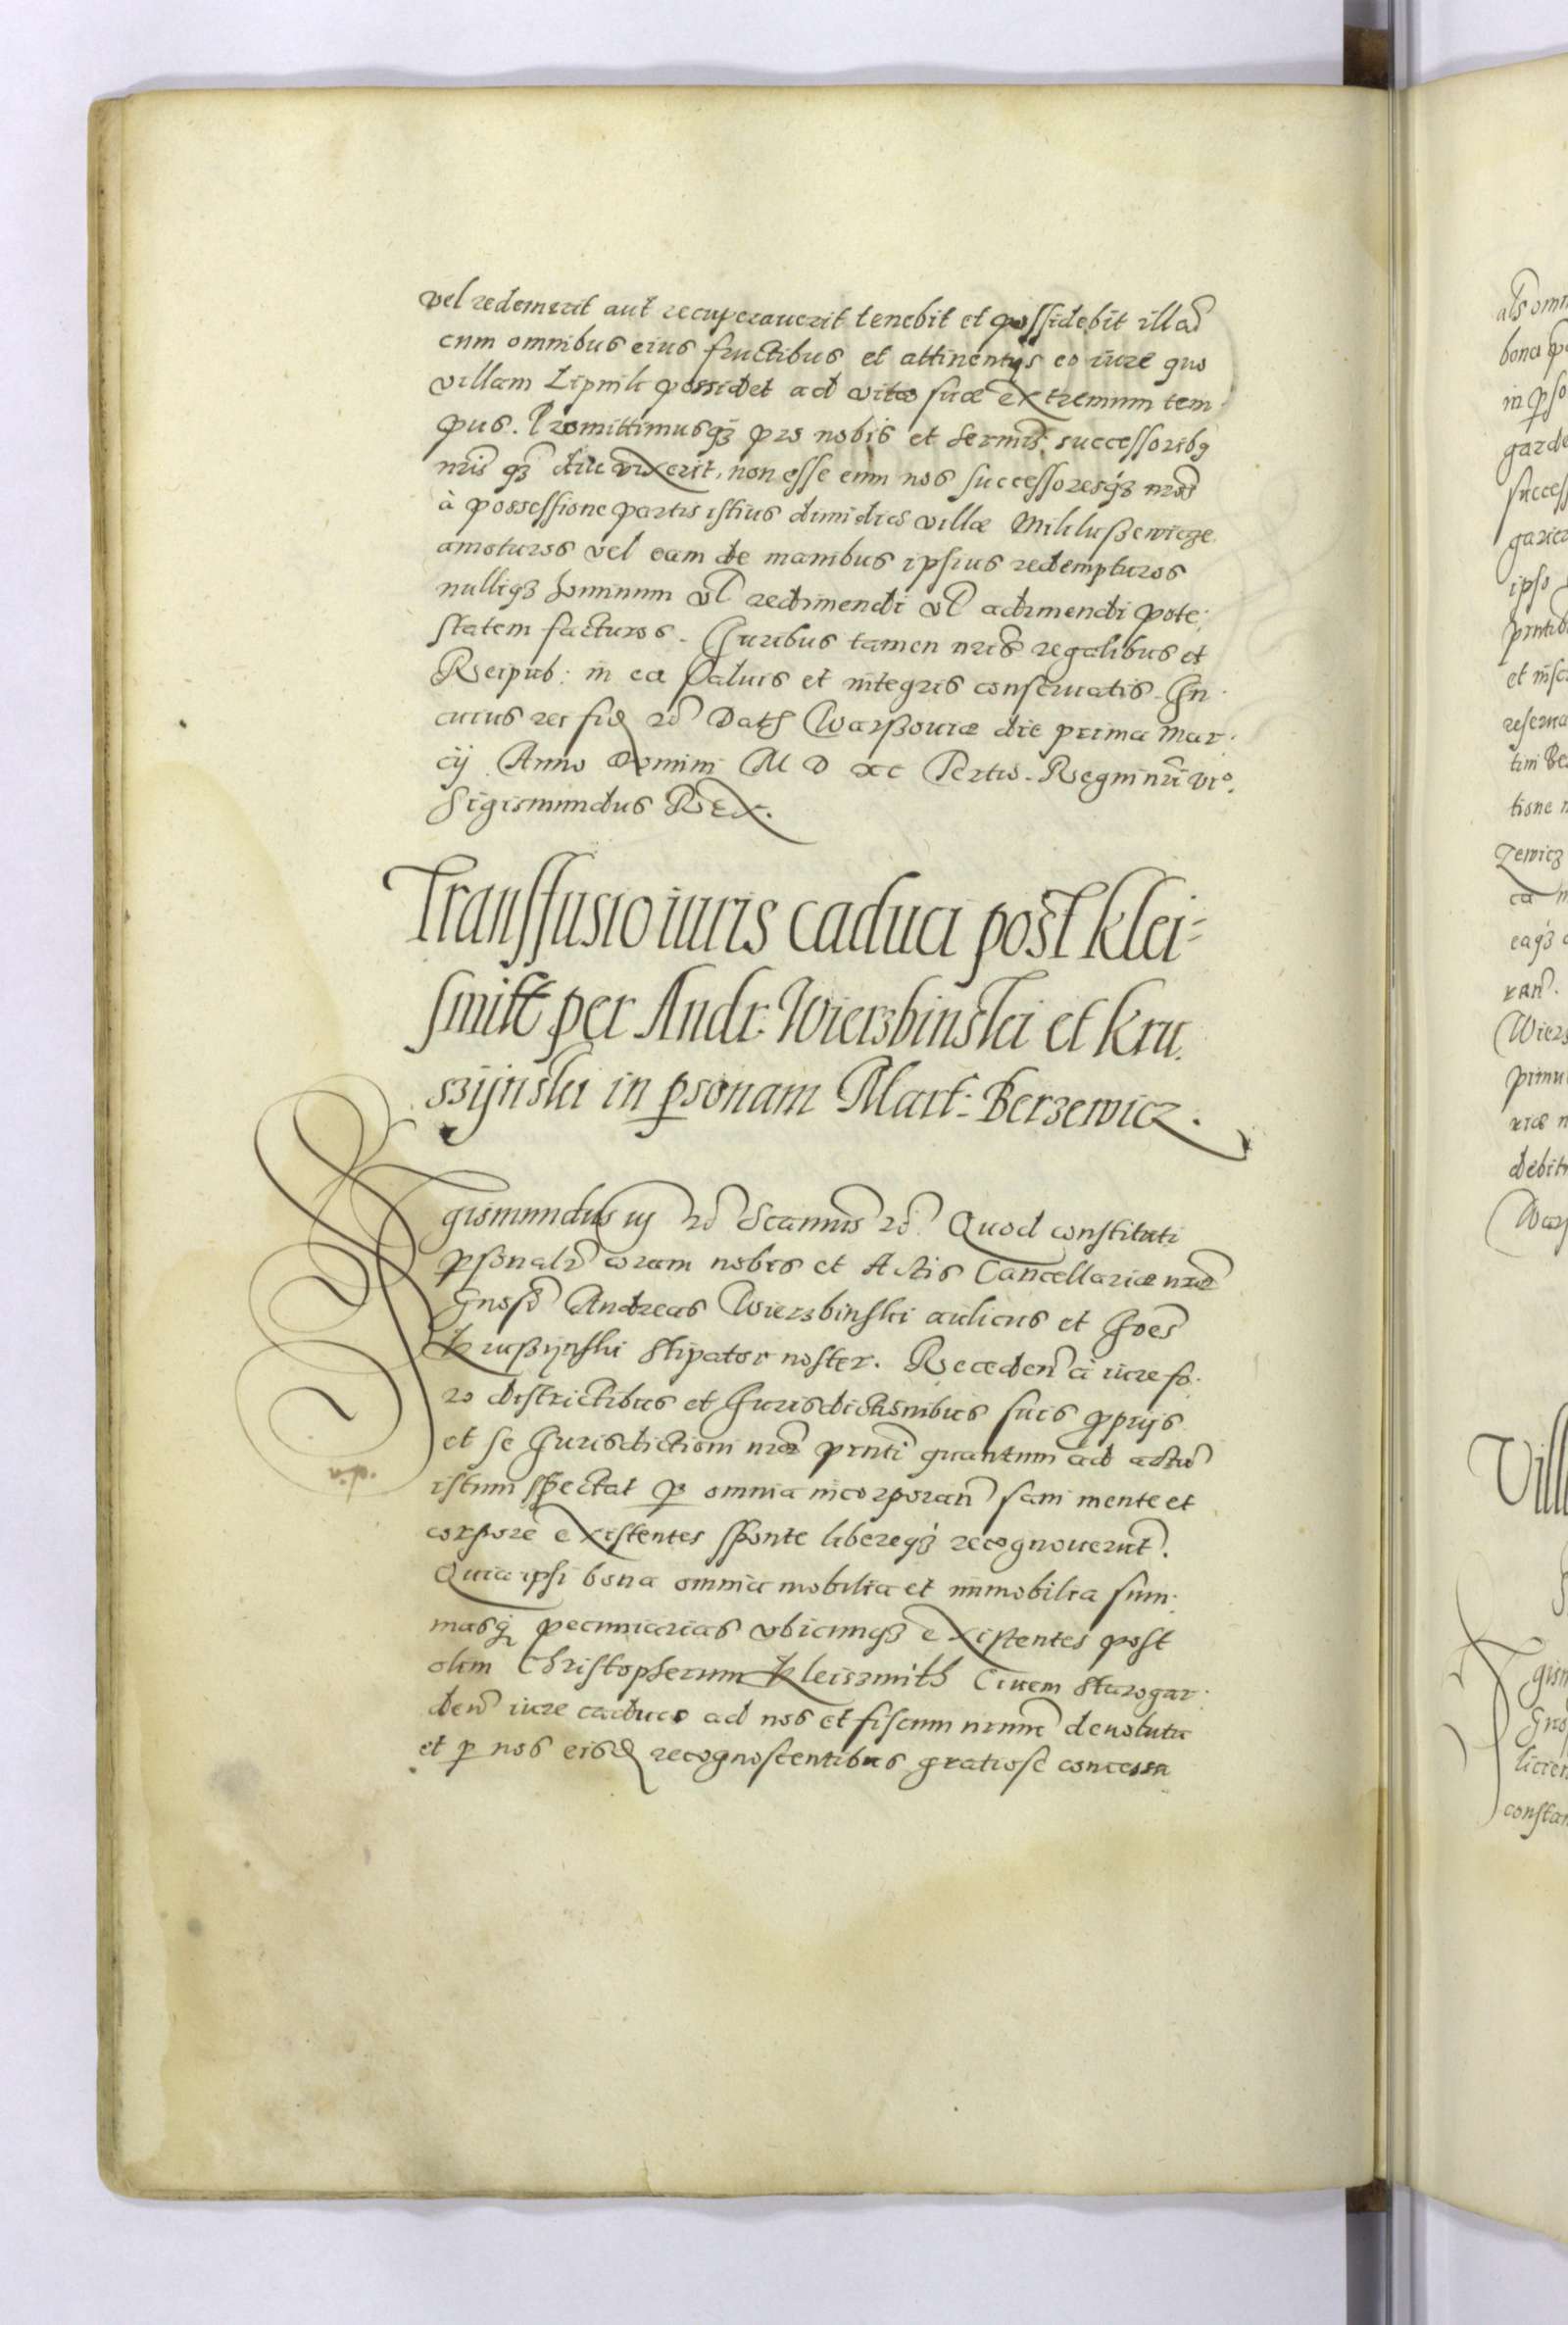 vel redemerit aut recuperauerit tenebit et possidebit illa͠
cum omnibus eius fructibus et attinentijs eo iure quo
villam Lipniki possidet ad vitæ suæ extremum tem:
pus. Promittimusqȝ pro nobis et Sermis. successoribꝰ
nris qȝ diu vixerit, non esse eum nos successoresqȝ nros
à possessione partis istius dimidiæ villæ Mililußewicze
amoturos vel eam de manibus ipsius redempturos
nulliqȝ hominum vl redimendi vl adimendi pote:
statem facturos. Iuribus tamen nris regalibus et
Reipub: in ea saluis et integris conseruatis. In
cuius rei fid rō Dat Warßouiæ die prima Mar:
cij Anno Domini M D XC Tertio. Regni nri vio.
Sigismundus Rex.
Transfusio iuris caduci post Klei=
smitt per Andr: Wierzbinski et Kru
szijnski in ꝑsonam Mart: Berzewicz.
Sigismundus iij rō Scanuis rō Quod constituti
ꝑsonalr coram nobis et Actis Cancellariæ nræ
Gnosi Andreas Wierzbinski aulicus et Ioes
Krußijnski Stipator noster. Receden à iure fo:
ro districtibus et Iurisdictionibus suis ꝓprijs
et se Iurisdictioni nræ prnti quantum ad actu͠
istum spectat ꝑ omnia incorporan sani mente et
corpore existentes sponte libereqȝ recognouerut.
Quia ipsi bona omnia mobilia et immobilia sum:
masqȝ pecuniarias vbicunqȝ existentes post
olim Christopherum Kleiszmith Ciuem Starogar:
den iure caduco ad nos et fiscum nrum deuoluta
et ꝑ nos eisd recognoscentibus gratiose concessa
als omn
bona
in ꝑso
garde
succes
garie
ipso
prntib
et insc
reserua
tim Be
tione
zewicz
ca
eaqȝ
ran.
Wierz
primu
riæ n
debit
War
Vill
gism
Gnos
licien
constan